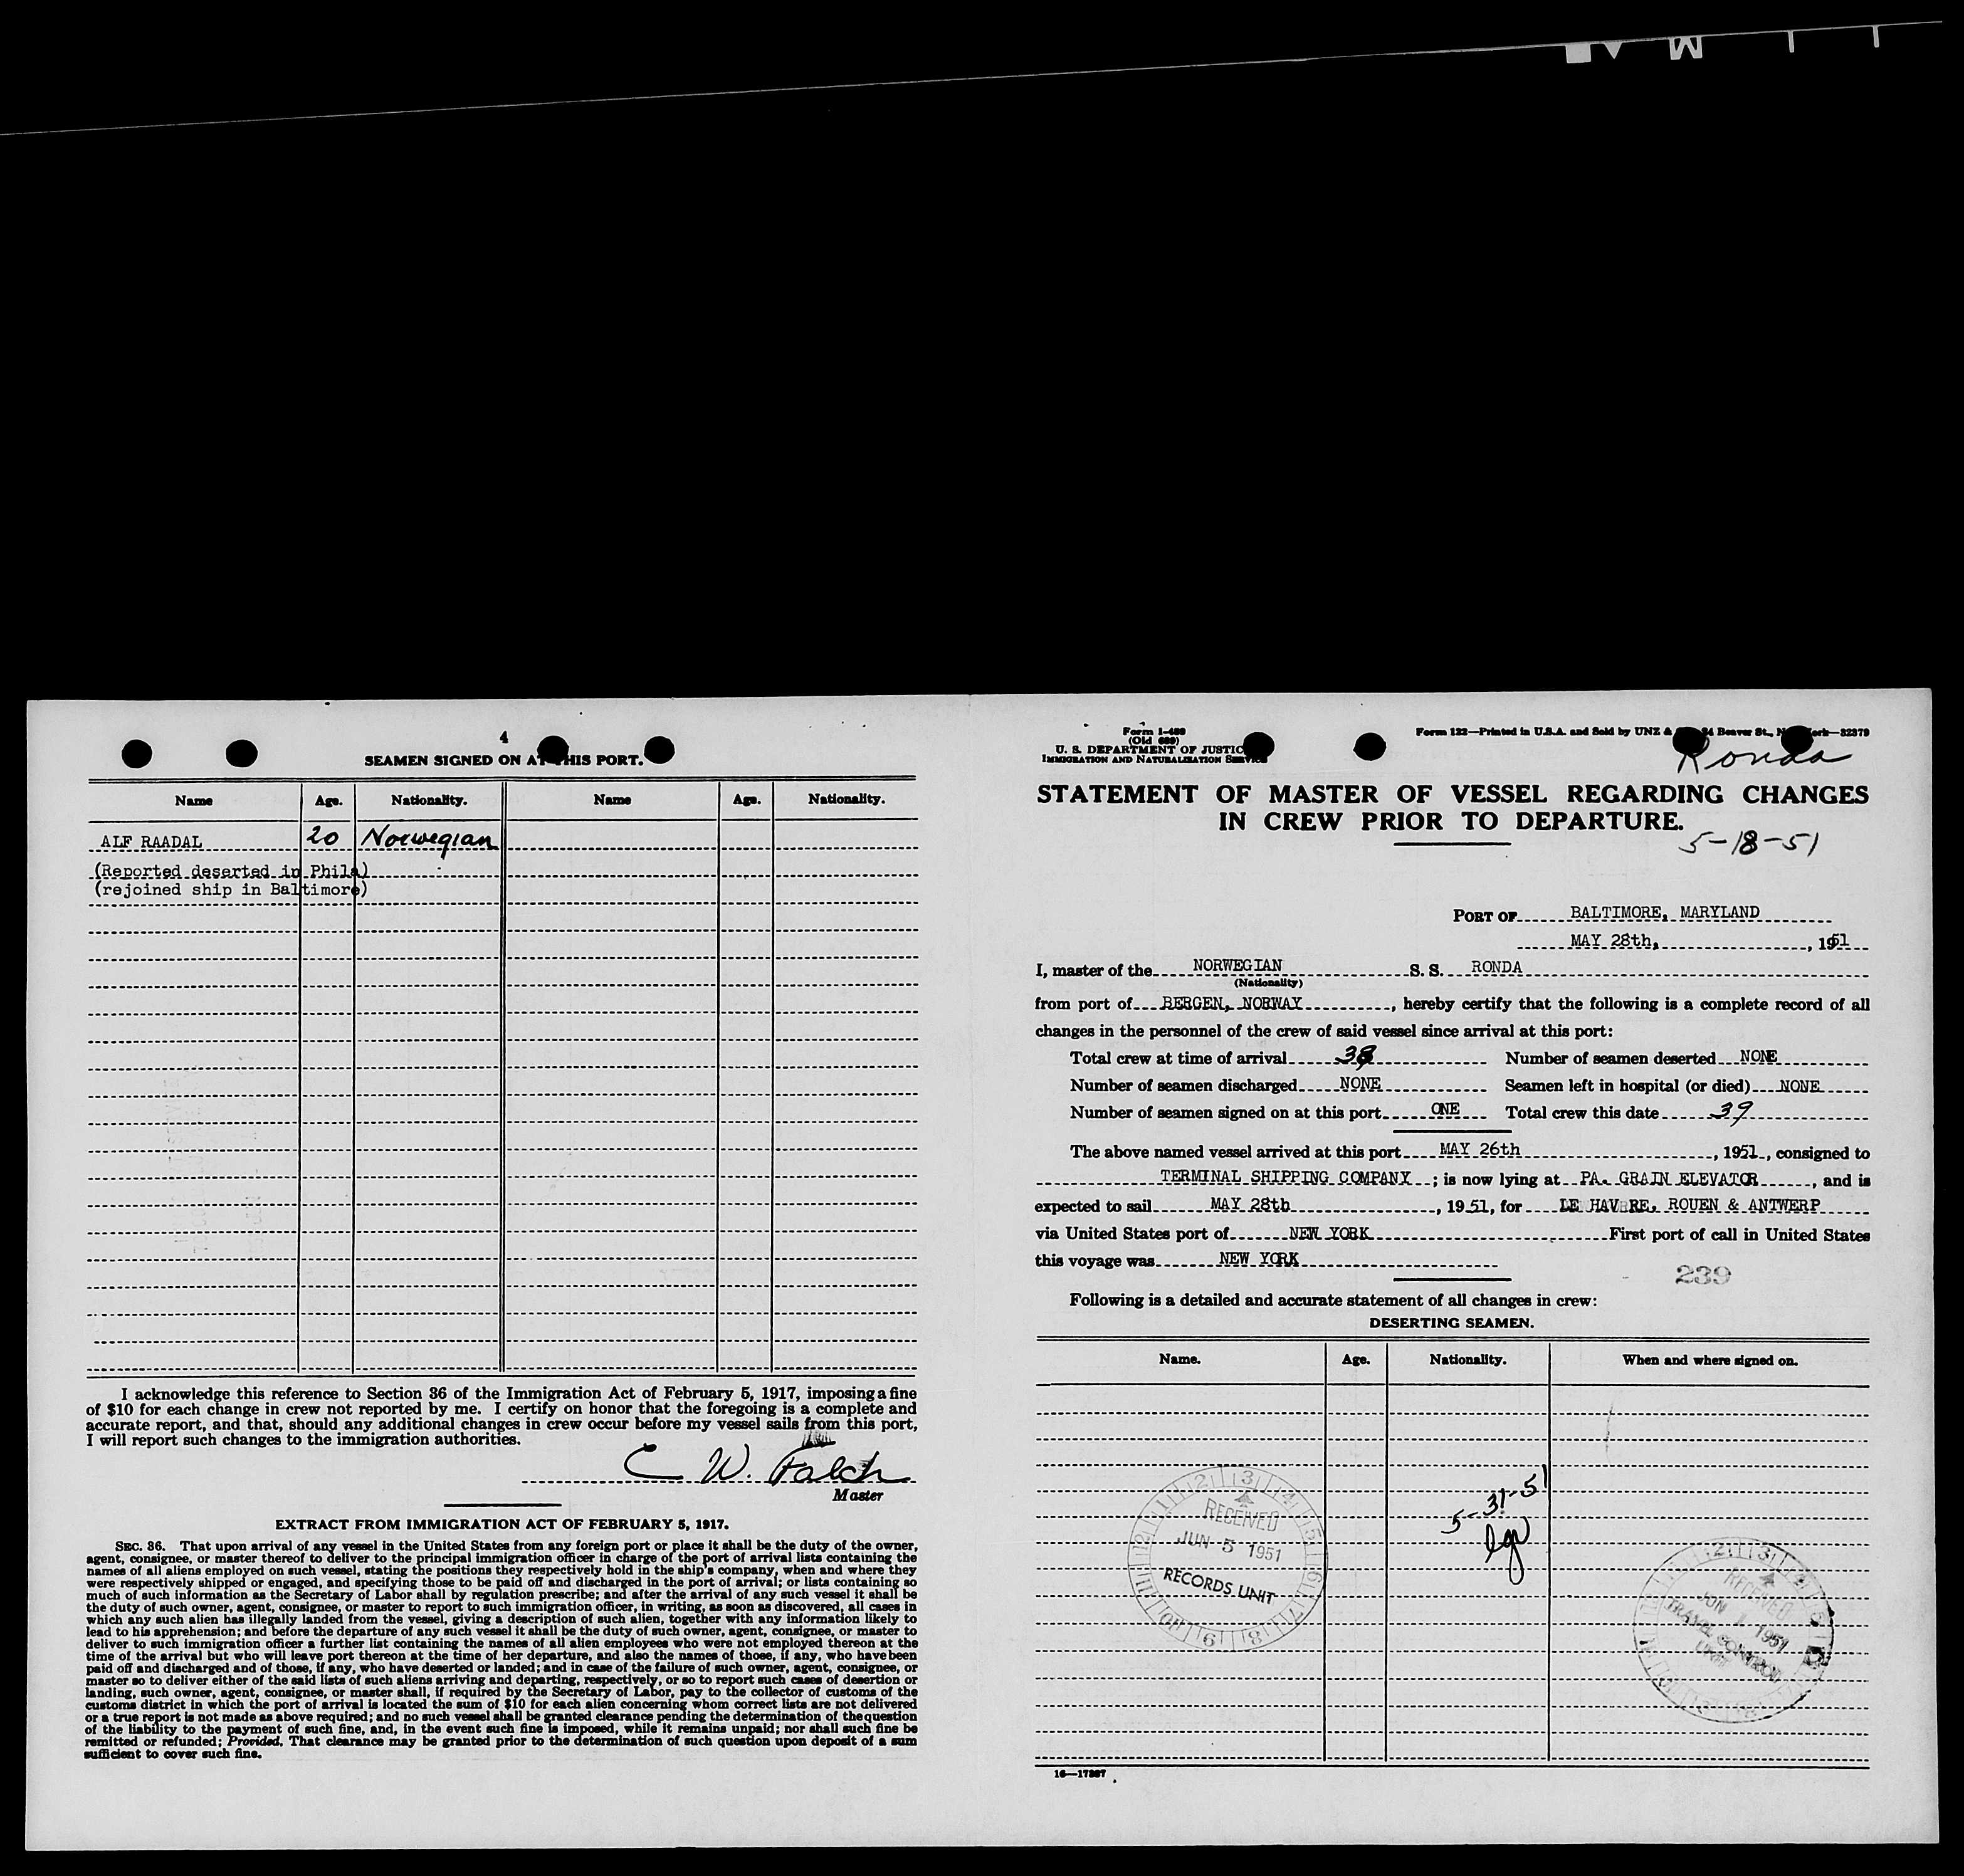 4
SEAMEN SIGNED ON AT THIS PORT.
Name Age. Nationality. Name Age. Nationality.
ALF RAADAL 20 Norwegian
(Reported deserted in Phila)
(rejoined ship in Baltimore)
I acknowledge this reference to Section 36 of the Immigration Act of February 5, 1917, imposing a fine
of $10 for each change in crew not reported by me. I certify on honor that the foregoing is a complete and
accurate report, and that, should any additional changes in crew occur before my vessel sails from this port,
I will report such changes to the immigration authorities.
C W. Falch
Master
EXTRACT FROM IMMIGRATION ACT OF FEBRUARY 5, 1917.
SEC. 36. That upon arrival of any vessel in the United States from any foreign port or place it shall be the duty of the owner,
agent, consignee, or master thereof to deliver to the principal immigration officer in charge of the port of arrival lists containing the
names of all aliens employed on such vessel, stating the positions they respectively hold in the ship's company, when and where they
were respectively shipped or engaged, and specifying those to be paid off and discharged in the port of arrival; or lists containing so
much of such information as the Secretary of Labor shall by regulation prescribe; and after the arrival of any such vessel it shall be
the duty of such owner, agent, consignee, or master to report to such immigration officer, in writing, as soon as discovered, all cases in
which any such alien has illegally landed from the vessel, giving a description of such alien, together with any information likely to
lead to his apprehension; and before the departure of any such vessel it shall be the duty of such owner, agent, consignee, or master to
deliver to such immigration officer a further list containing the names of all alien employees who were not employed thereon at the
time of the arrival but who will leave port thereon at the time of her departure, and also the names of those, if any, who have been
paid off and discharged and of those, if any, who have deserted or landed; and in case of the failure of such owner, agent, consignee, or
master so to deliver either of the said lists of such aliens arriving and departing, respectively, or so to report such cases of desertion or
landing, such owner, agent, consignee, or master shall, if required by the Secretary of Labor, pay to the collector of customs of the
customs district in which the port of arrival is located the sum of $10 for each alien concerning whom correct lists are not delivered
or a true report is not made as above required; and no such vessel shall be granted clearance pending the determination of the question
of the liability to the payment of such fine, and, in the event such fine is imposed, while it remains unpaid; nor shall such fine be
remitted or refunded; Provided, That clearance may be granted prior to the determination of such question upon deposit of a sum
sufficient to cover such fine.
Form I-489
(Old 689)
U. S. DEPARTMENT OF JUSTIC
IMMIGRATION AND NATURALIZATION SERVICE
Form 122—Printed in U.S.A. and Sold by UNZ & 24 Beaver St., N ork—32379
Ronda
STATEMENT OF MASTER OF VESSEL REGARDING CHANGES
IN CREW PRIOR TO DEPARTURE.
5-18-51
PORT OF BALTIMORE, MARYLAND
MAY 28th, , 1951
I, master of the NORWEGIAN S. S. RONDA
(Nationality)
from port of BERGEN, NORWAY , hereby certify that the following is a complete record of all
changes in the personnel of the crew of said vessel since arrival at this port:
Total crew at time of arrival 38 Number of seamen deserted NONE
Number of seamen discharged NONE Seamen left in hospital (or died) NONE
Number of seamen signed on at this port ONE Total crew this date 39
The above named vessel arrived at this port MAY 26th , 1951, consigned to
TERMINAL SHIPPING COMPANY ; is now lying at PA. GRAIN ELEVATOR , and is
expected to sail MAY 28th , 1951, for LE HAVRE, ROUEN & ANTWERP
via United States port of NEW YORK First port of call in United States
this voyage was NEW YORK
239
Following is a detailed and accurate statement of all changes in crew:
DESERTING SEAMEN.
Name. Age. Nationality. When and where signed on.
5-31-51
RECEIVED
JUN 5 1951
RECORDS UNIT
RECEIVED
JUN 1 1951
TRAVEL CONTROL
UNIT